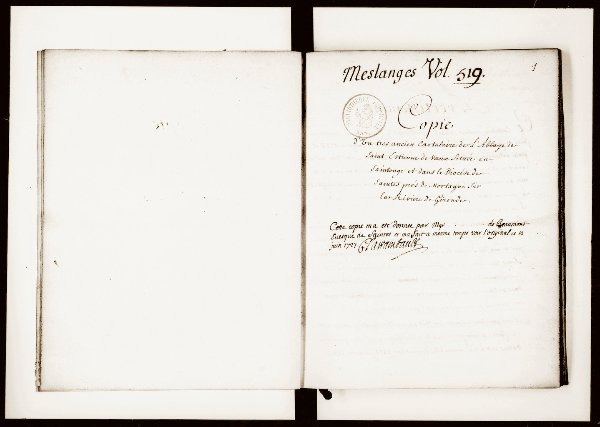 Meslanges Vol. 519.
1
Copie
d'Un tres ancien Cartulaire de L'Abbaye de
Saint Estienne de Vaux Située en
Saintonge et dans le Diocese de
Saintes près de Mortagne Sur
La Riviere de Gironde.
Cette copie m'a esté donnée par Mgr de
Evesque de et m'a fait a mesme temps voir l'original ce
juin 1707 Clairambault